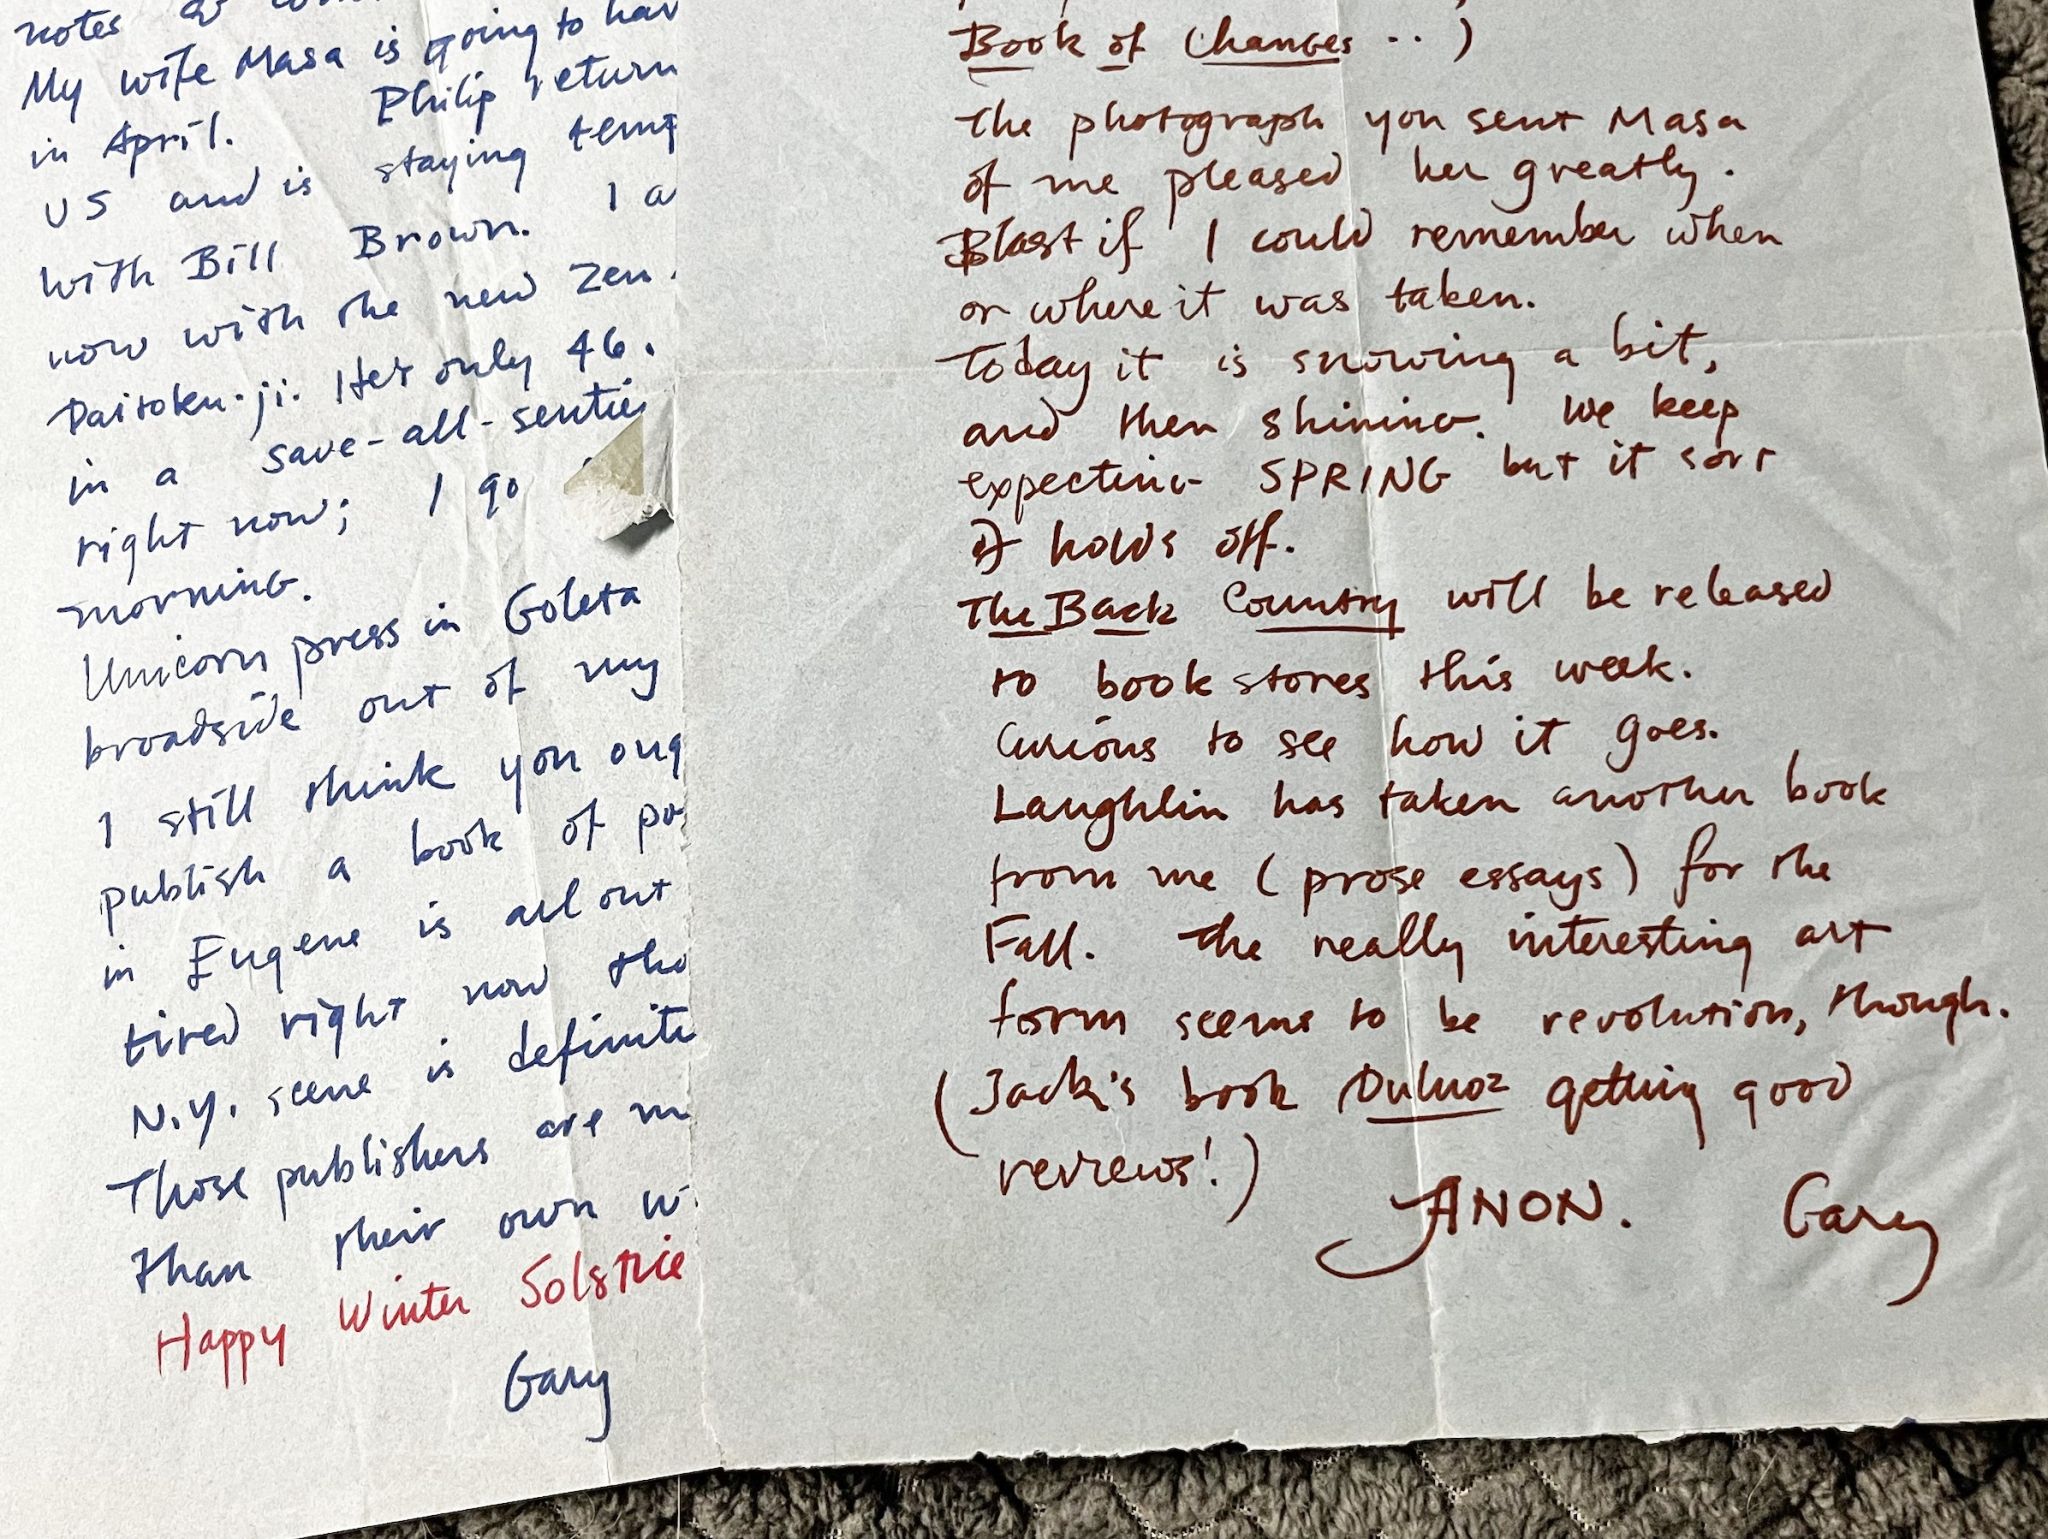 notes
My wife Masa is going to hav
in April. Philip return
US and is staying temp
with Bill Brown. I a
now with the new Zen
Daitoku-ji. He's only 46.
in a save-all-sentie
right now; I go
morning.
Unicorn press in Goleta
broadside out of my
I still think you oug
publish a book of po
in Eugene is all out
tired right now tho
N.Y. scene is definite
Those publishers are m
than their own w
Happy Winter Solstice
Gary
Book of Changes ..)
The photograph you sent Masa
of me pleased her greatly.
Blast if I could remember when
or where it was taken.
Today it is snowing a bit,
and then shining. We keep
expecting SPRING but it sort
of holds off.
The Back Country will be released
to book stores this week.
Curious to see how it goes.
Laughlin has taken another book
from me (prose essays) for the
Fall. The really interesting art
form seems to be revolution, though.
(Jack's book Duluoz getting good
reviews!)
ANON. Gary